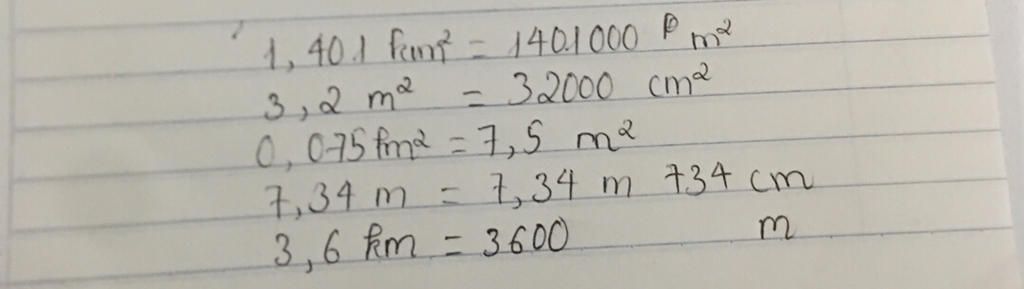 1,401 km² = 1401000 m²
3,2 m² = 32000 cm²
0,075 m² = 7,5 m²
7,34 m = 7,34 m 734 cm
3,6 km = 3600 m